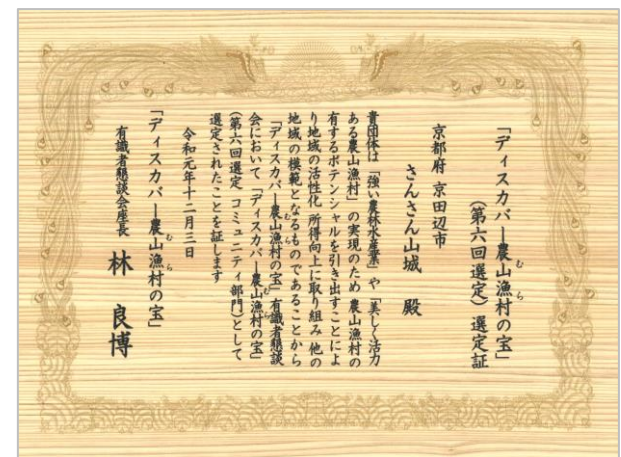 「ディスカバー農山漁村の宝」
（第六回選定）選定証
京都府 京田辺市
さんさん山城 殿
貴団体は「強い農林水産業」や「美しく活力
ある農山漁村」の実現のため 農山漁村の
有するポテンシャルを引き出すことによ
り地域の活性化 所得向上に取り組み 他の
地域の模範となるものであることから
「ディスカバー農山漁村の宝」有識者懇談
会において「ディスカバー農山漁村の宝」
（第六回選定 コミュニティ部門）として
選定されたことを証します
令和元年十二月三日
「ディスカバー農山漁村の宝」
有識者懇談会座長 林 良博